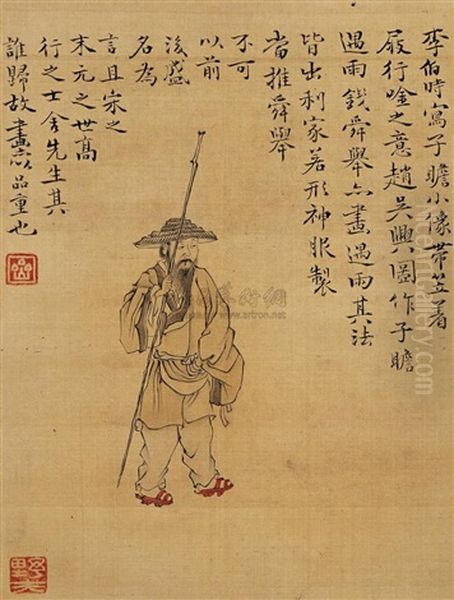 李伯時寫子瞻小像帶笠着
屐行唫之意趙吳興圖作子瞻
遇雨錢舜舉亦畫遇雨其法
皆出利家若形神服製
當推舜舉
不可
以前
後盛
名為
言且宋之
末元之世高
行之士舍先生其
誰歸故畫以品重也
www.artron.net